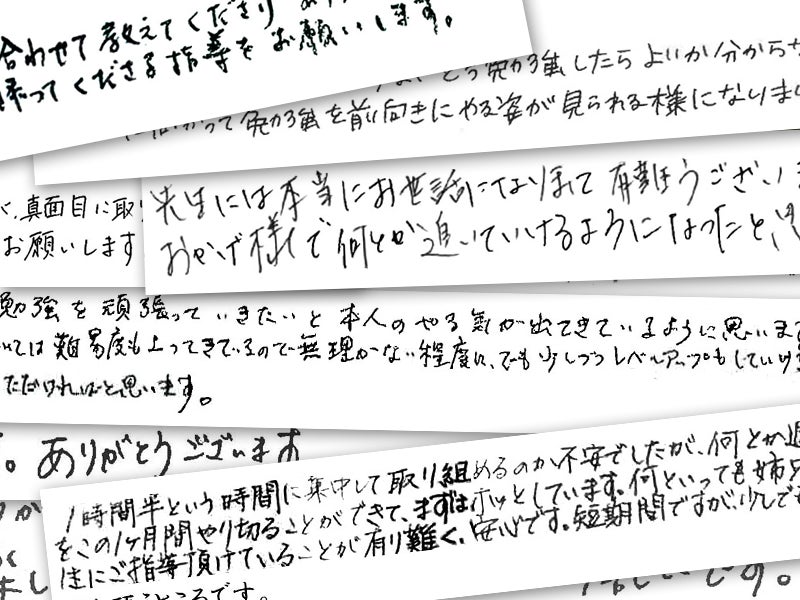 合わせて教えてくださり
帰ってくださる指導をお願いします。
どう勉強したらよいか分からな
向かって勉強を前向きにやる姿が見られる様になりまし
真面目に取り
お願いします
先生には本当にお世話になりまして有難うございま
おかげ様で何とか追いていけるようになったと
勉強を頑張っていきたいと本人のやる気が出てきているように思いま
いては難易度も上ってきているので無理がない程度に、でも少しづつレベルアップもしていけ
ただければと思います。
。ありがとうございます
1時間半という時間に集中して取り組めるのか不安でしたが、何とか週
をこの1ヶ月間やり切ることができて、まずはホッとしています。何といっても姉兄
生にご指導頂けていることが有り難く、安心です。短期間ですが、少しでも
ところです。
です。